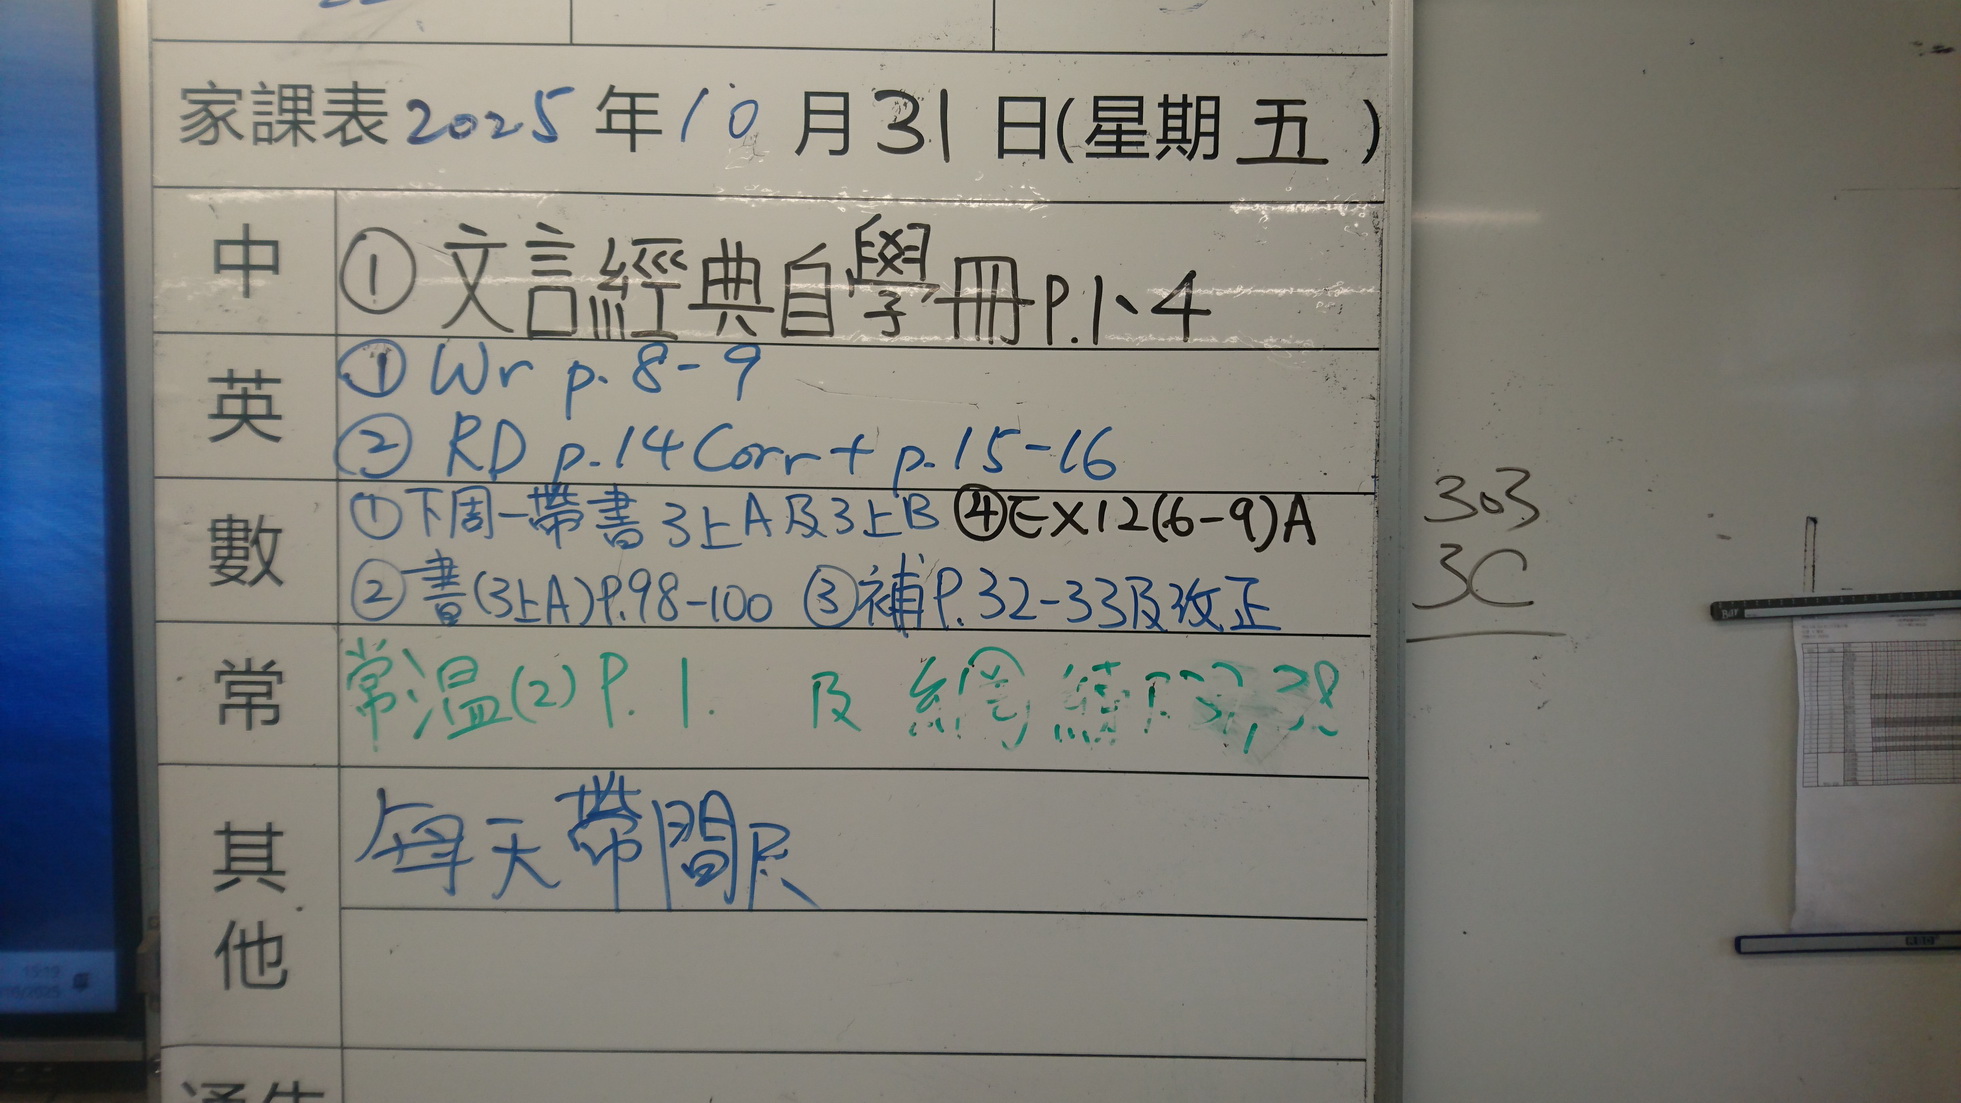 家課表2025年10月31日(星期五)
中
① 文言經典自學冊P.1、4
英
① Wr p. 8-9
② RD p.14 Corr + p.15-16
數
①下周一帶書3上A及3上B ④EX12(6-9)A
②書(3上A)P.98-100 ③補P.32-33及改正
常
常溫(2) P. 1. 及
其他
每天帶間尺
303
3C